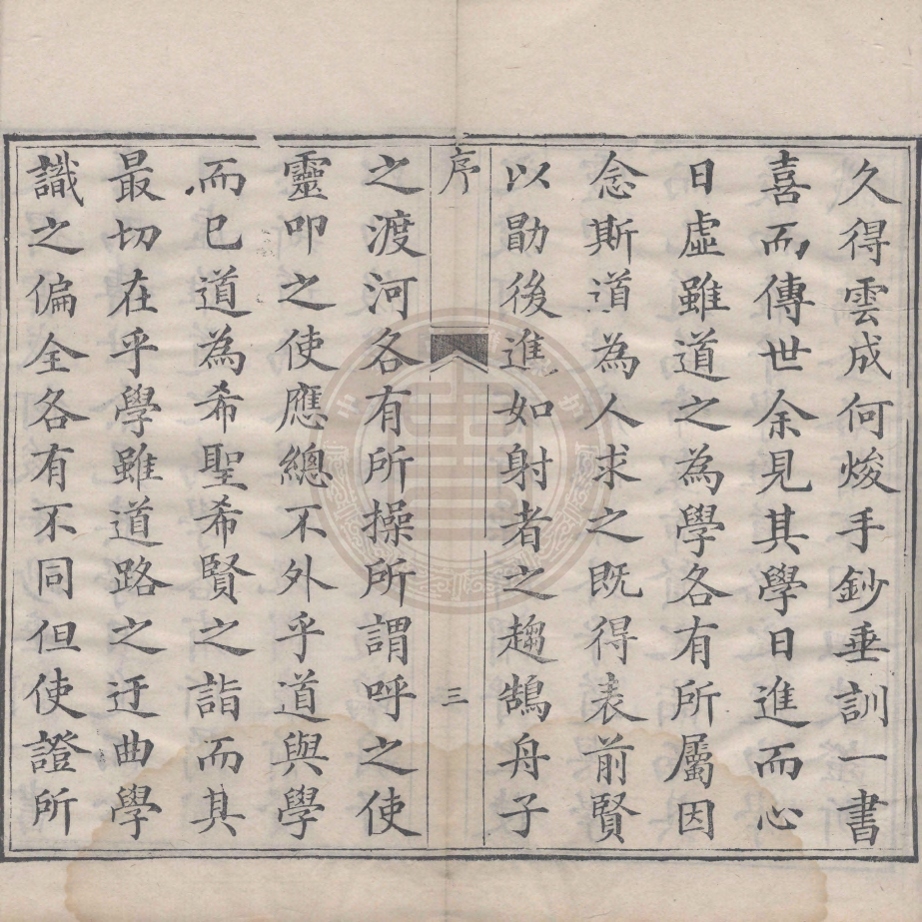 久得雲成何焌手鈔垂訓一書
喜而傳世余見其學日進而心
日虛雖道之為學各有所屬因
念斯道為人求之既得表前賢
以勖後進如射者之趨鵠舟子
序
三
之渡河各有所操所謂呼之使
靈叩之使應總不外乎道與學
而已道為希聖希賢之詣而其
最切在乎學雖道路之迂曲學
識之偏全各有不同但使證所